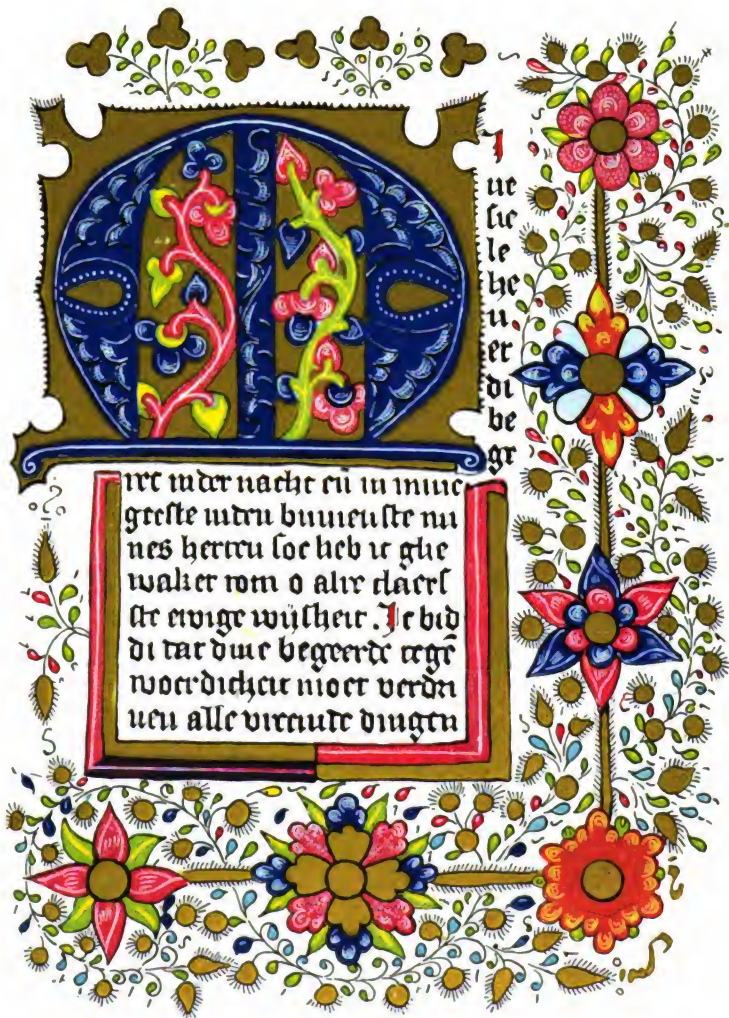 M
I
ne
sie
le
he
u
er
di
be
ge
ret inder nacht eñ in mine
geeste inden binnenste mi
nes herten soe heb ic ghe
waket rom o alre claers
ste ewige wijsheit. Ic bid
di dat dine begeerde tegē
woerdicheit moet verdri
uen alle vreemde dingen